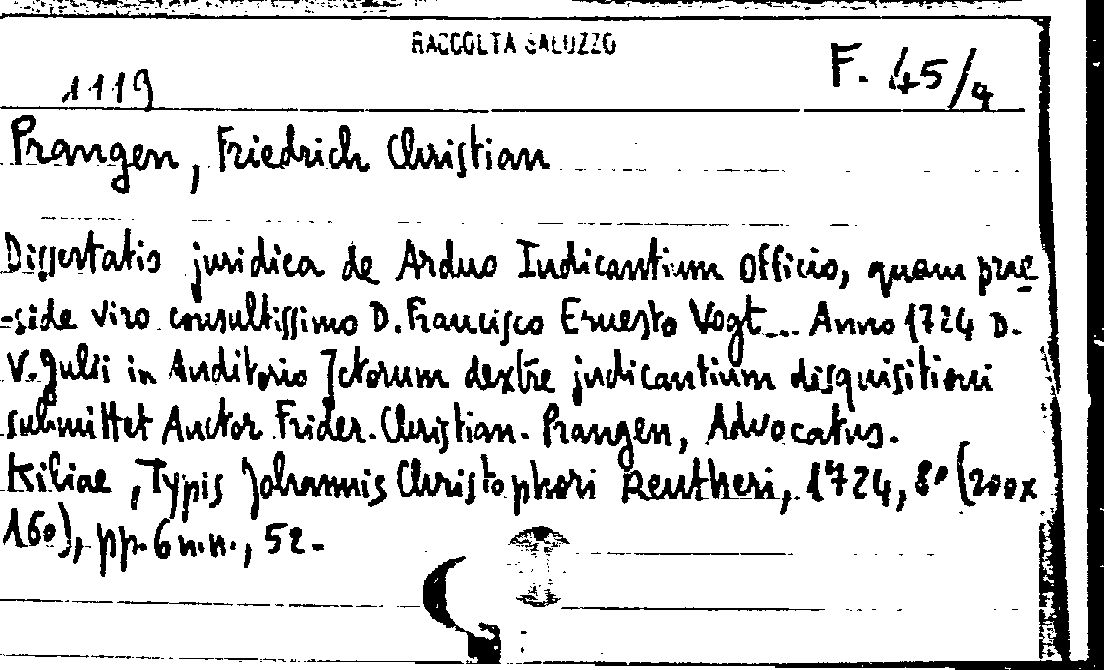 RACCOLTA SALUZZO
1119
F. 45/4
Prangen, Friedrich Christian
Dissertatio juridica de Arduo Iudicantium officio, quam prae
-side viro consultissimo D. Francisco Ernesto Vogt... Anno 1724 D.
V. Julii in Auditorio Jctorum dextre judicantium disquisitioni
submittet Auctor Frider. Christian. Prangen, Advocatus.
Kiliae, Typis Johannis Christophori Reutheri, 1724, 8° (200x
160), pp. 6 n.n., 52.